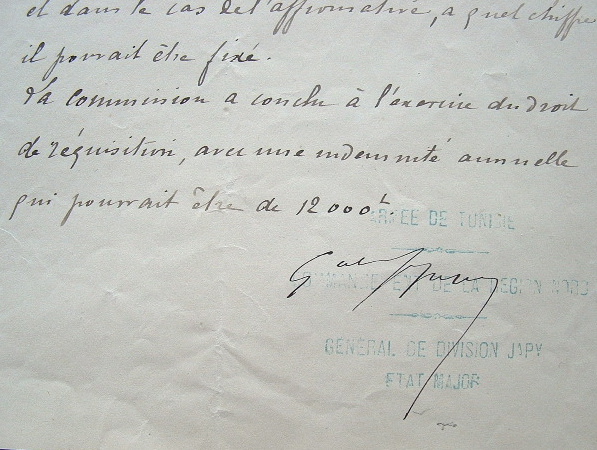 et dans le cas de l'affirmative, a quel chiffre
il pourrait être fixé.
La Commission a conclu à l'exercice du droit
de réquisition, avec une indemnité annuelle
qui pourrait être de 12000 L.
ARMEE DE TUNISIE
COMMANDEMENT DE LA REGION NORD
GENERAL DE DIVISION JAPY
ETAT MAJOR